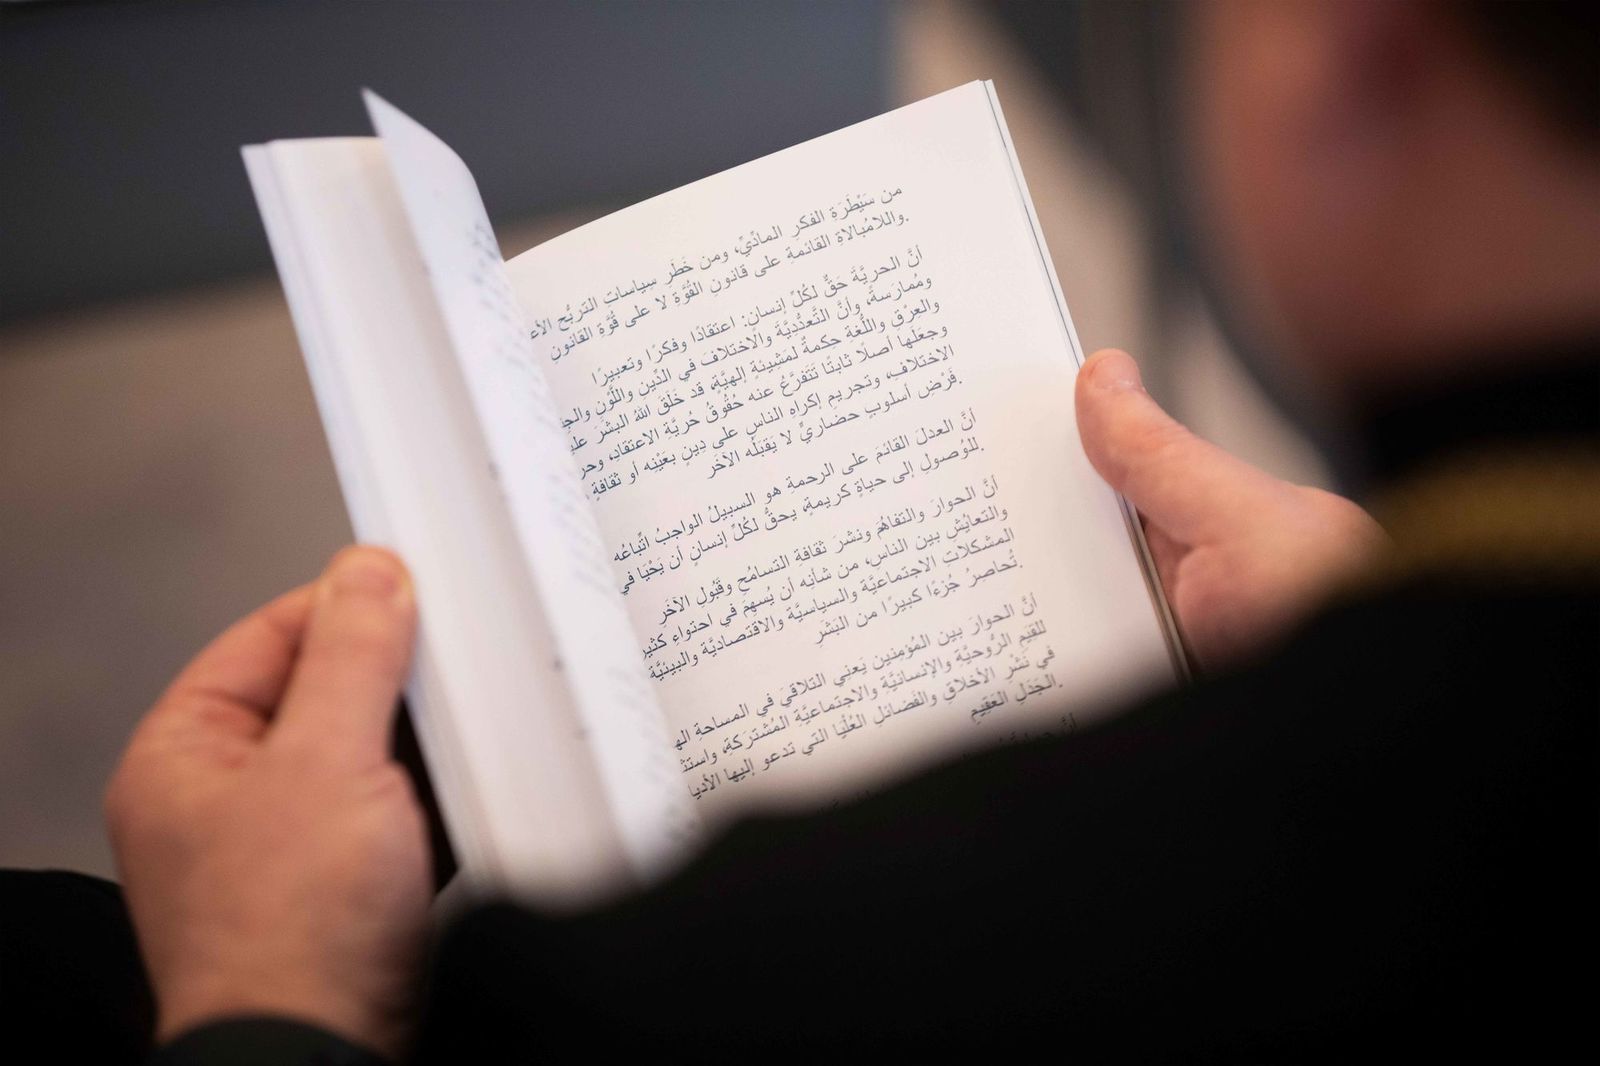 من سَيْطَرَةِ الفكرِ المادِّيِّ، ومن خَطَرِ سِياساتِ التربُّحِ
واللامُبالاةِ القائمةِ على قانونِ القُوَّةِ لا على قُوَّةِ القانونِ.
أنَّ الحريَّةَ حَقٌّ لكُلِّ إنسانٍ: اعتقادًا وفكرًا وتعبيرًا
ومُمارَسةً، وأنَّ التَّعدُّديَّةَ والاختلافَ في الدِّينِ واللَّوْنِ
والعِرْقِ واللُّغةِ حِكمةٌ لمَشِيئةٍ إلهيَّةٍ، قد خَلَقَ اللهُ البشَرَ
وجعَلَها أصلًا ثابتًا تَتَفرَّعُ عنه حُقُوقُ حُريَّةِ الاعتقادِ،
الاختلافِ، وتجريمِ إكراهِ الناسِ على دِينٍ بعَيْنِه أو ثقافةٍ
فَرْضِ أسلوبٍ حضاريٍّ لا يَقبَلُه الآخَر.
أنَّ العدلَ القائمَ على الرحمةِ هو السبيلُ الواجبُ اتِّباعُه
للوُصولِ إلى حياةٍ كريمةٍ، يحقُّ لكُلِّ إنسانٍ أن يَحْيَا في
أنَّ الحوارَ والتفاهُمَ ونشرَ ثقافةِ التسامُحِ وقَبُولِ الآخَرِ
والتعايُشِ بين الناسِ، من شأنِه أن يُسهِمَ في احتواءِ
المشكلاتِ الاجتماعيَّة والسياسيَّة والاقتصاديَّة والبيئيَّة
تُحاصِرُ جُزءًا كبيرًا من البَشَرِ.
أنَّ الحوارَ بين المُؤمِنين يَعني التلاقيَ في المساحةِ
للقيَمِ الرُّوحيَّةِ والإنسانيَّةِ والاجتماعيَّةِ المُشتركَةِ،
في نَشْرِ الأخلاقِ والفَضائلِ العُلْيَا التي تدعو إليها
الجَدَلِ العَقِيمِ.
أنَّ